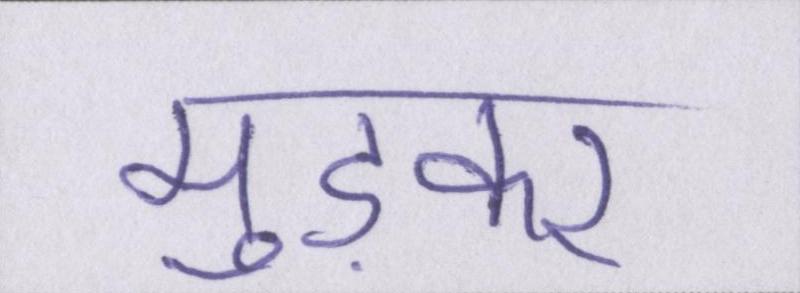 मुड़कर